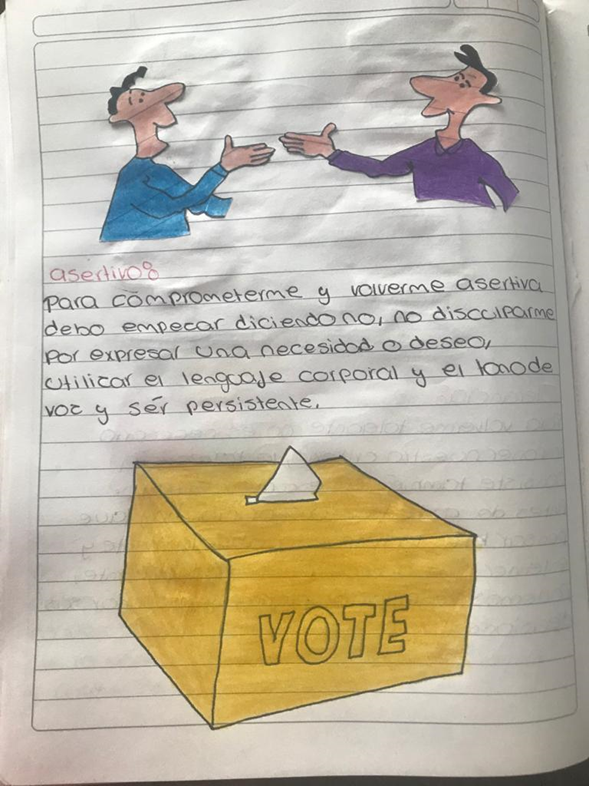 asertivo8
Para comprometerme y volverme asertiva
debo empezar diciendo no, no disculparme
por expresar una necesidad o deseo,
utilizar el lenguaje corporal y el tono de
voz y sér persistente.
VOTE